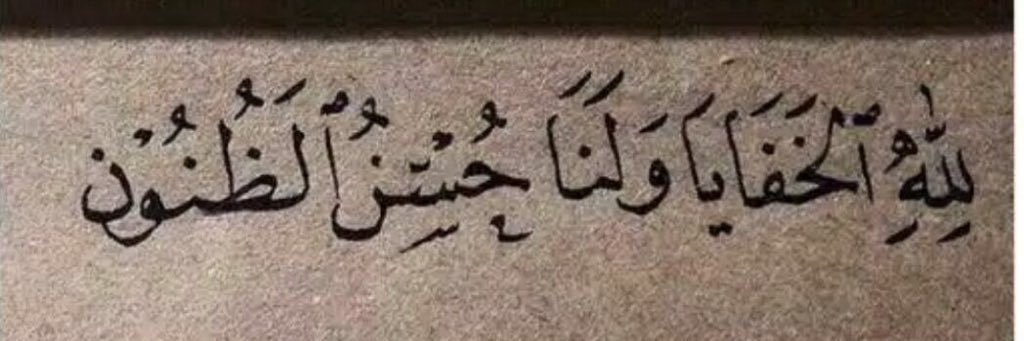 لِلَّهِ ٱلْخَفَايَا وَلَنَا حُسْنُ ٱلظُّنُون